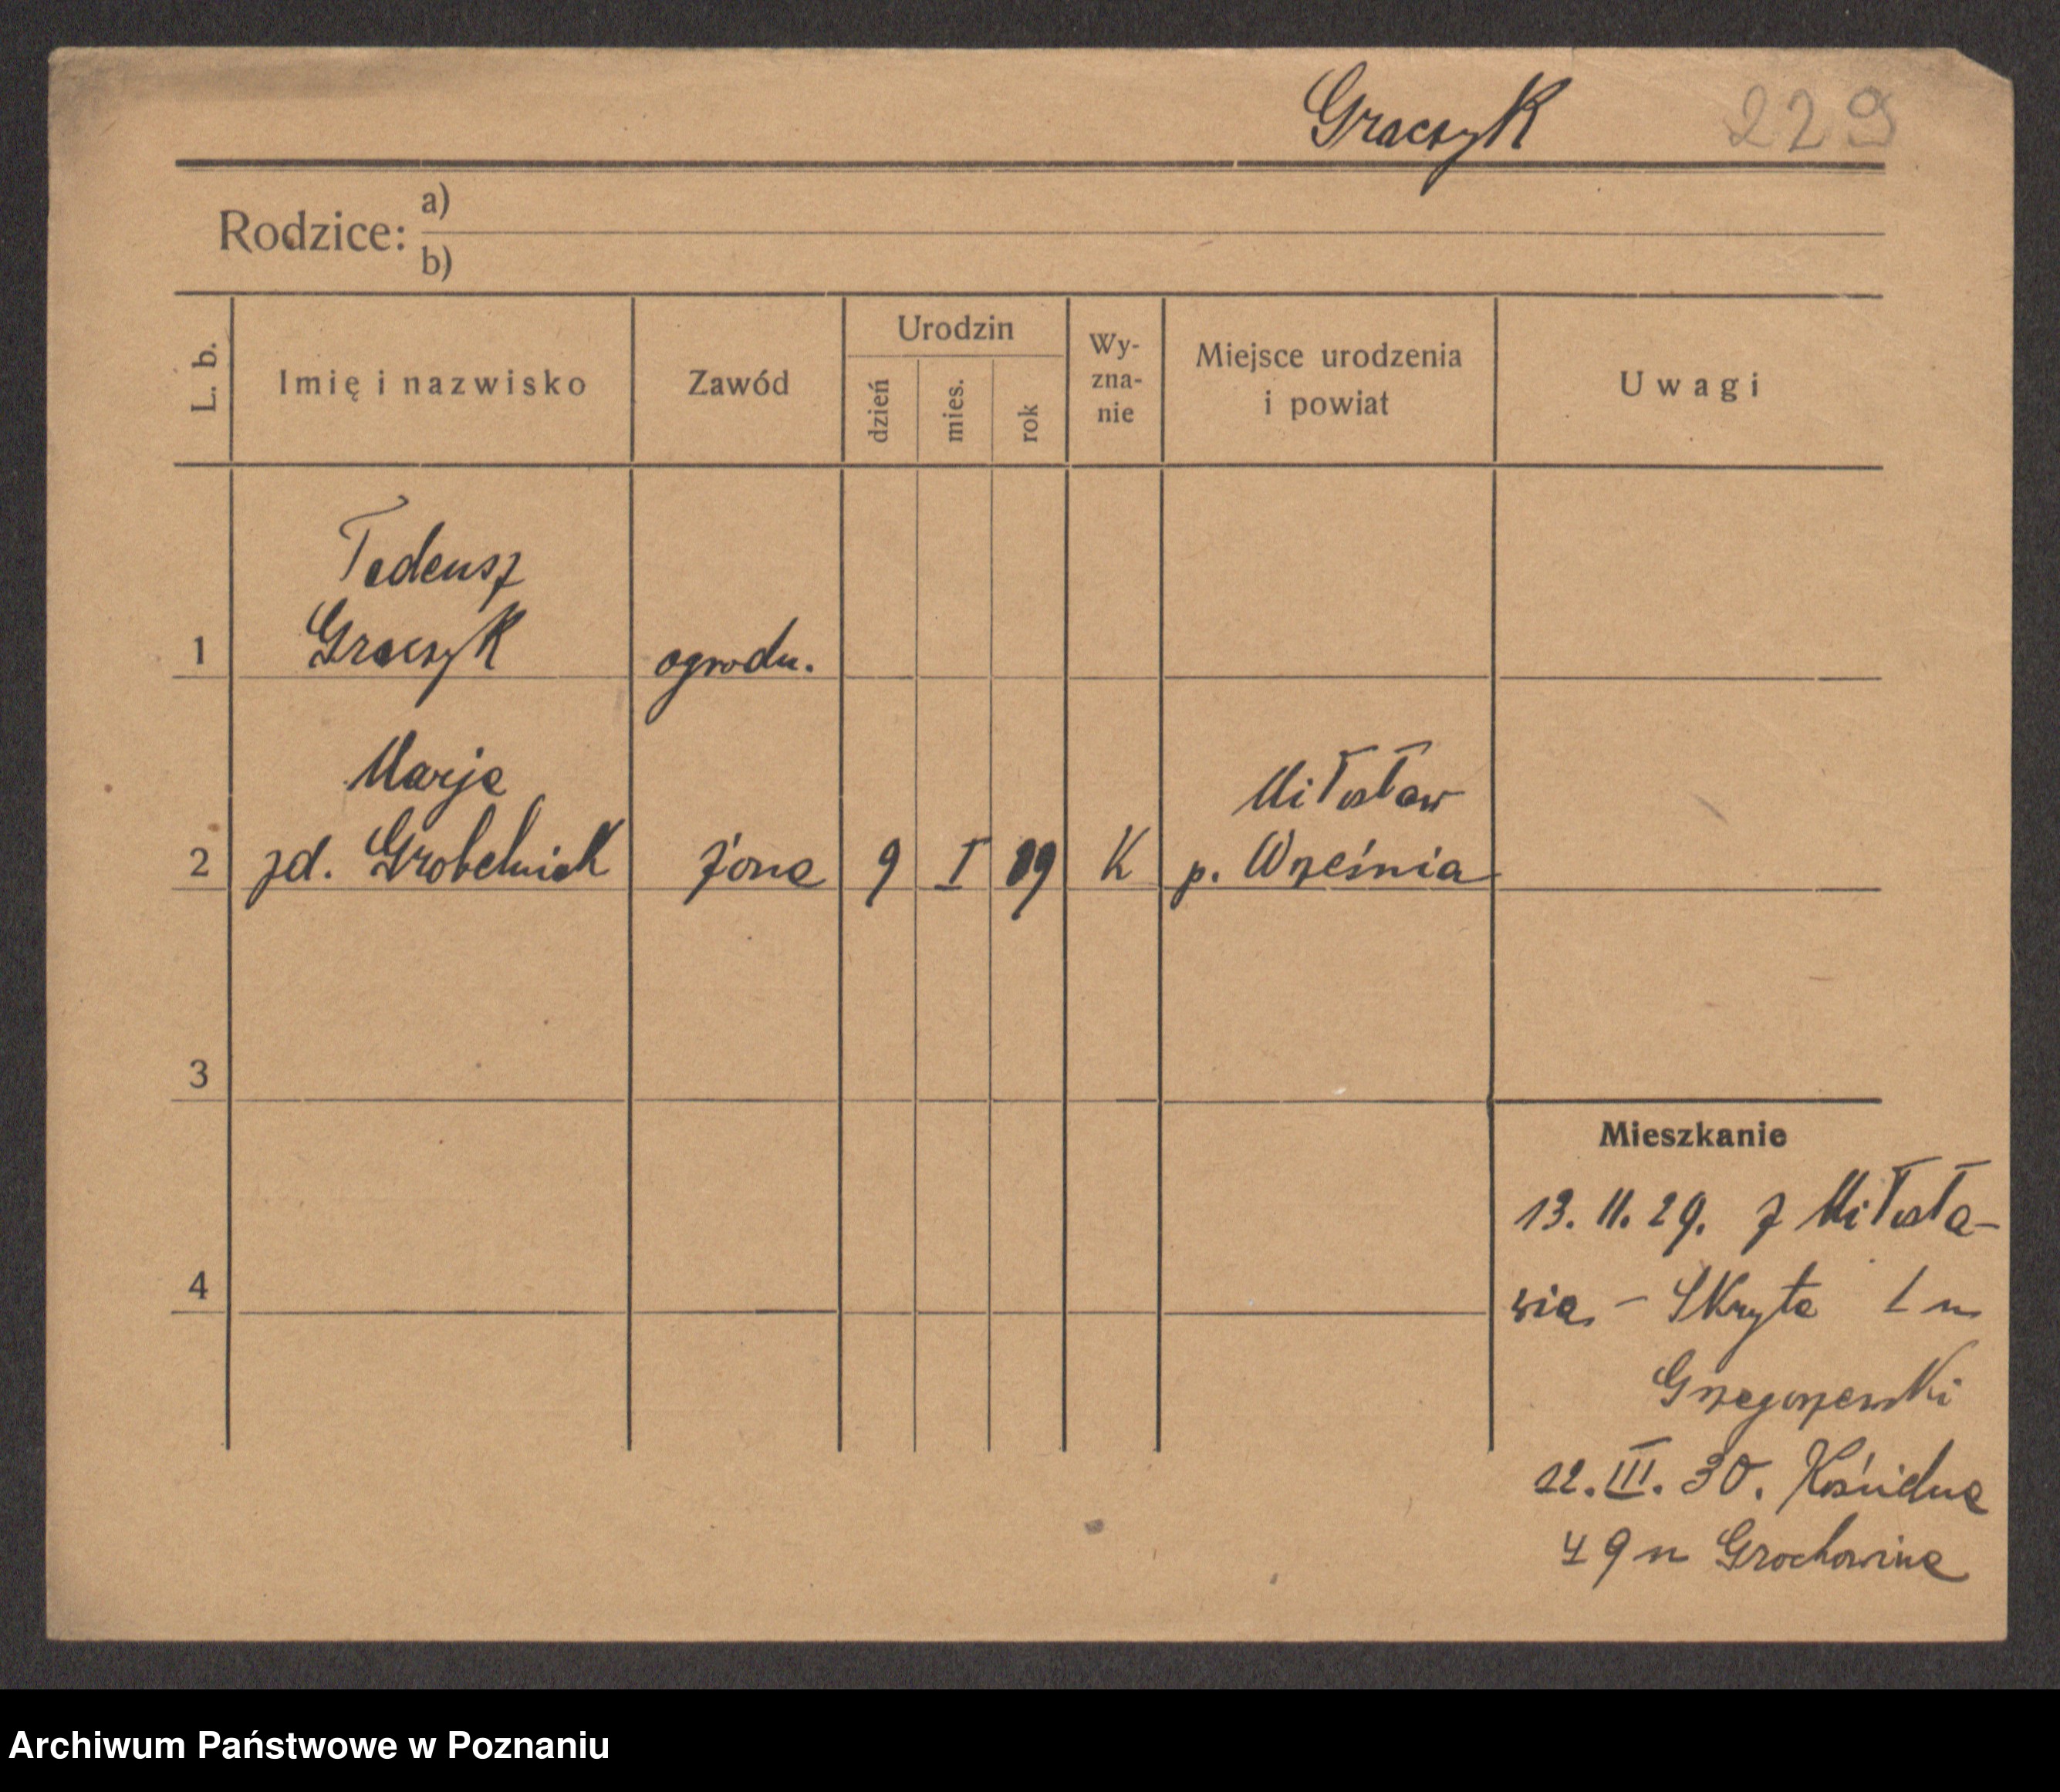 Graczyk 229
Rodzice: a)
b)
L. b. Imię i nazwisko Zawód Urodzin dzień mies. rok Wy-zna-nie Miejsce urodzenia i powiat Uwagi
Tadeusz
1 Graczyk ogrodn.
Marja Miłosław
2 zd. Grobelniak żona 9 I 09 K p. Września
3
Mieszkanie
13. 11. 29. z Miłosła-
4 wia, - Skryta 1 n
Grzegorzewski
12. III. 30. Kościelna
49 n Grochowina
Archiwum Państwowe w Poznaniu